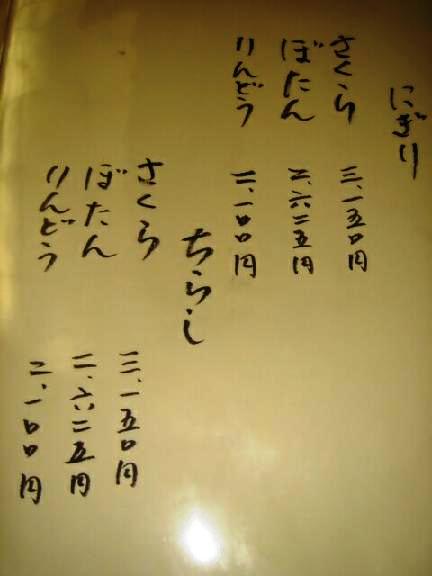 にぎり
さくら 三、一五〇円
ぼたん 二、六二五円
りんどう 二、一〇〇円
ちらし
さくら 三、一五〇円
ぼたん 二、六二五円
りんどう 二、一〇〇円